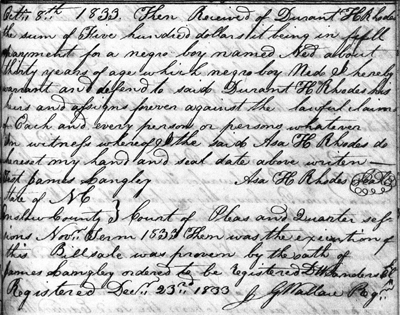 Octr. 8th 1833. Then Received of Durant H Rhodes
the sum of Five hundred dollars it being in full
payment for a negro boy named Ned about
thirty years of age which negro boy Nede I hereby
warrant and defend to said Durant H Rhodes his
heirs and assigns forever against the lawful claims
of Each and every person or persons whatever
In witness whereof I the said Asa H Rhodes do
hereset my hand and seal date above writen
Test James Langley Asa H Rhodes Seal
State of NC
County } Court of Pleas and Quarter ses
sions Novr. Term 1833 Then was the execution of
this Billsale was proven by the oath of
James Langley ordered to be registered
Registered Decr. 23rd 1833 J G Wallace Regr